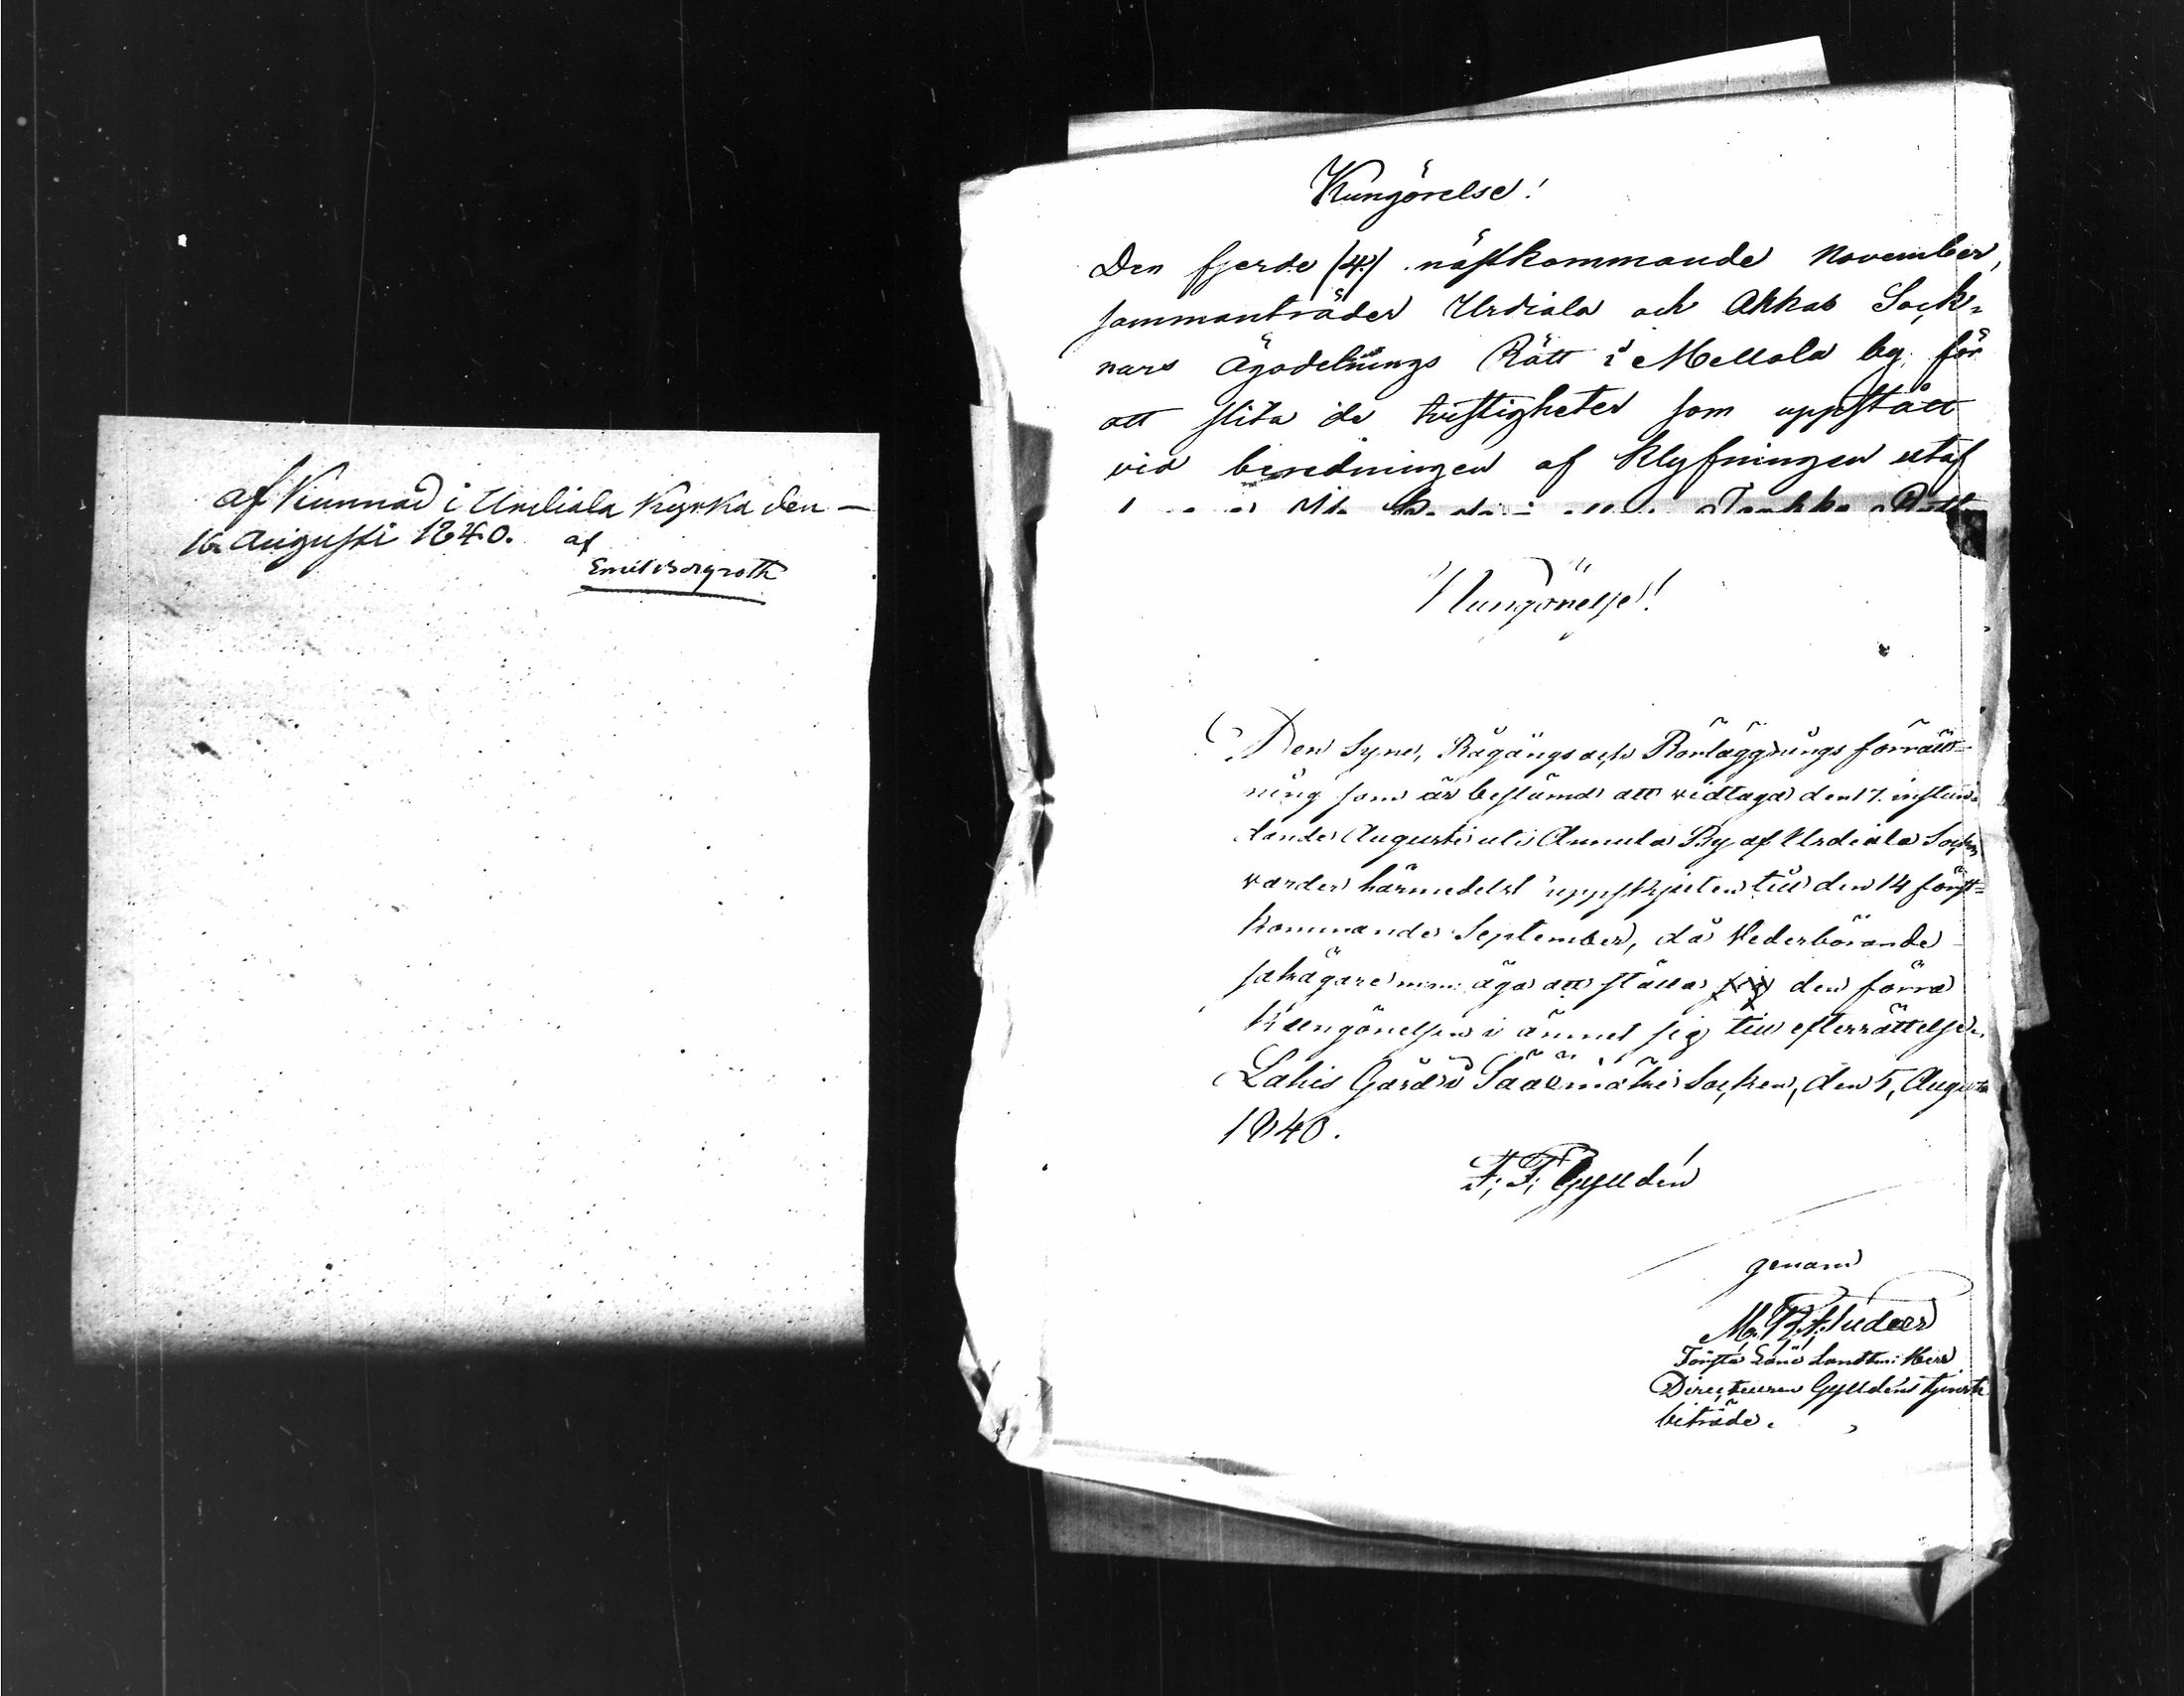 afkunnad i Urdiala Kyrka den —
16 Augusti 1840. af
Emil Bergroth
Kungörelse!
Den fjerde /4/ nästkommande November,
sammanträder Urdiala och Akkas Sock-
nars Ägodelnings Rätt i Mellola by, för
att slita de tvistigheter som uppstått
vid beredningen af klyfningen utaf
Kungörelse!
Den Syne, Rågångs och Rörläggnings förrätt-
ning som är bestämd att vidtaga den 17. instun-
dande Augusti uti Annula By af Urdiala Socken
varder härmedelst uppskjuten till den 14 först-
kommande September, då Vederbörande
sakägare äga att ställa den förra
Kungörelsen i ämnet sig till efterrättelse.
Lahis Gård i Sääexmäki Socken, den 5, Augusti
1840.
F: F: Gyldén
genom
Förste Herr
Directeuren Gylldéns tjenste
biträde.